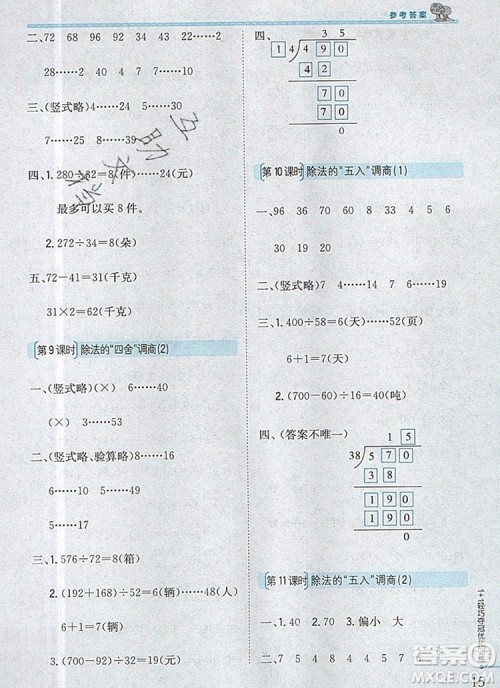 参考答案
二、72 68 96 92 33 22……2
30 27 4 4……7
三、(竖式略)4……24 5……30
7……15 8……39
四、1.280÷32=8(件)……24(元)
最多可以买8件。
2.272÷34=8(朵)
五、72-41=31(千克)
31×2=62(千克)
第9课时 除法的“四舍”调商(2)
一、(竖式略)(×) 8……44
(×) 3……53
二、(竖式略、验算略)8……16
5……17
三、1.576÷72=8(箱)
2.(192+168)÷52=6(辆)……48(人)
6+1=7(辆)
3.700÷82=8(个)……44(元)
四、
3 5
14 4 9 0
4 2
7 0
7 0
0
第10课时 除法的“五入”调商(1)
一、96 36 70 60 8 33 4 5 6
30 19 20 4
二、(竖式略)7 4……14 7……17
三、1.400÷58=6(页)……52(页)
6+1=7(天)
2.(700-60)÷16=40(吨)
四、(答案不唯一)
1 5
38 5 7 0
3 8
1 9 0
1 9 0
0
第11课时 除法的“五入”调商(2)
一、1.40 2.70 3.偏小 大
二、7 5 4 8 7 4 5 7 4
1+1轻巧夺冠优化
15
MXQE.COM